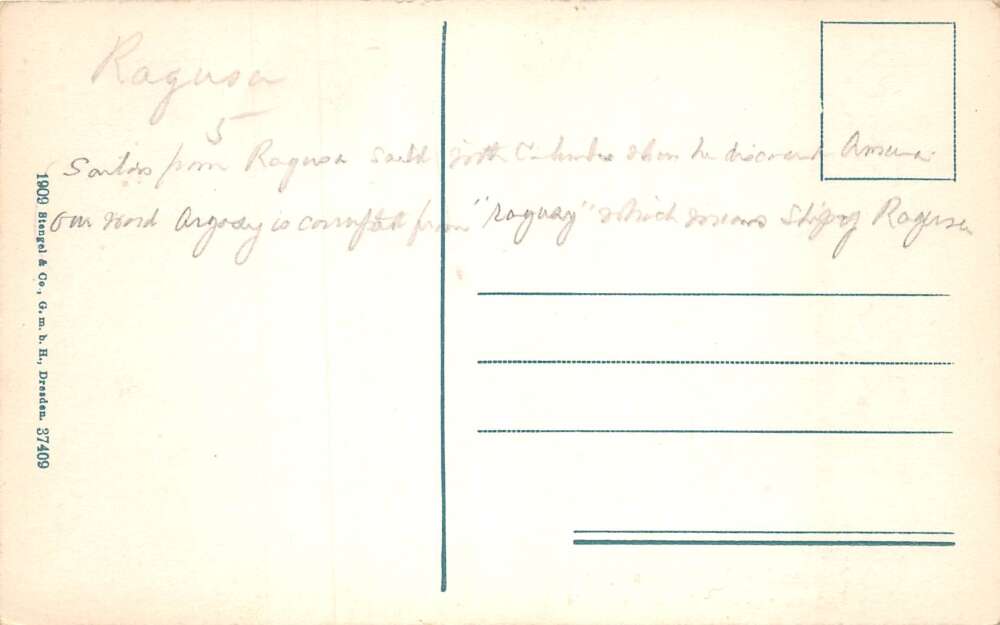 Ragusa
5
Sailors from Ragusa sailed with Columbus when he discovered America.
Our word Argosy is corrupted from "ragusy" which means Ship of Ragusa
1909 Stengel & Co., G. m. b. H., Dresden. 37409